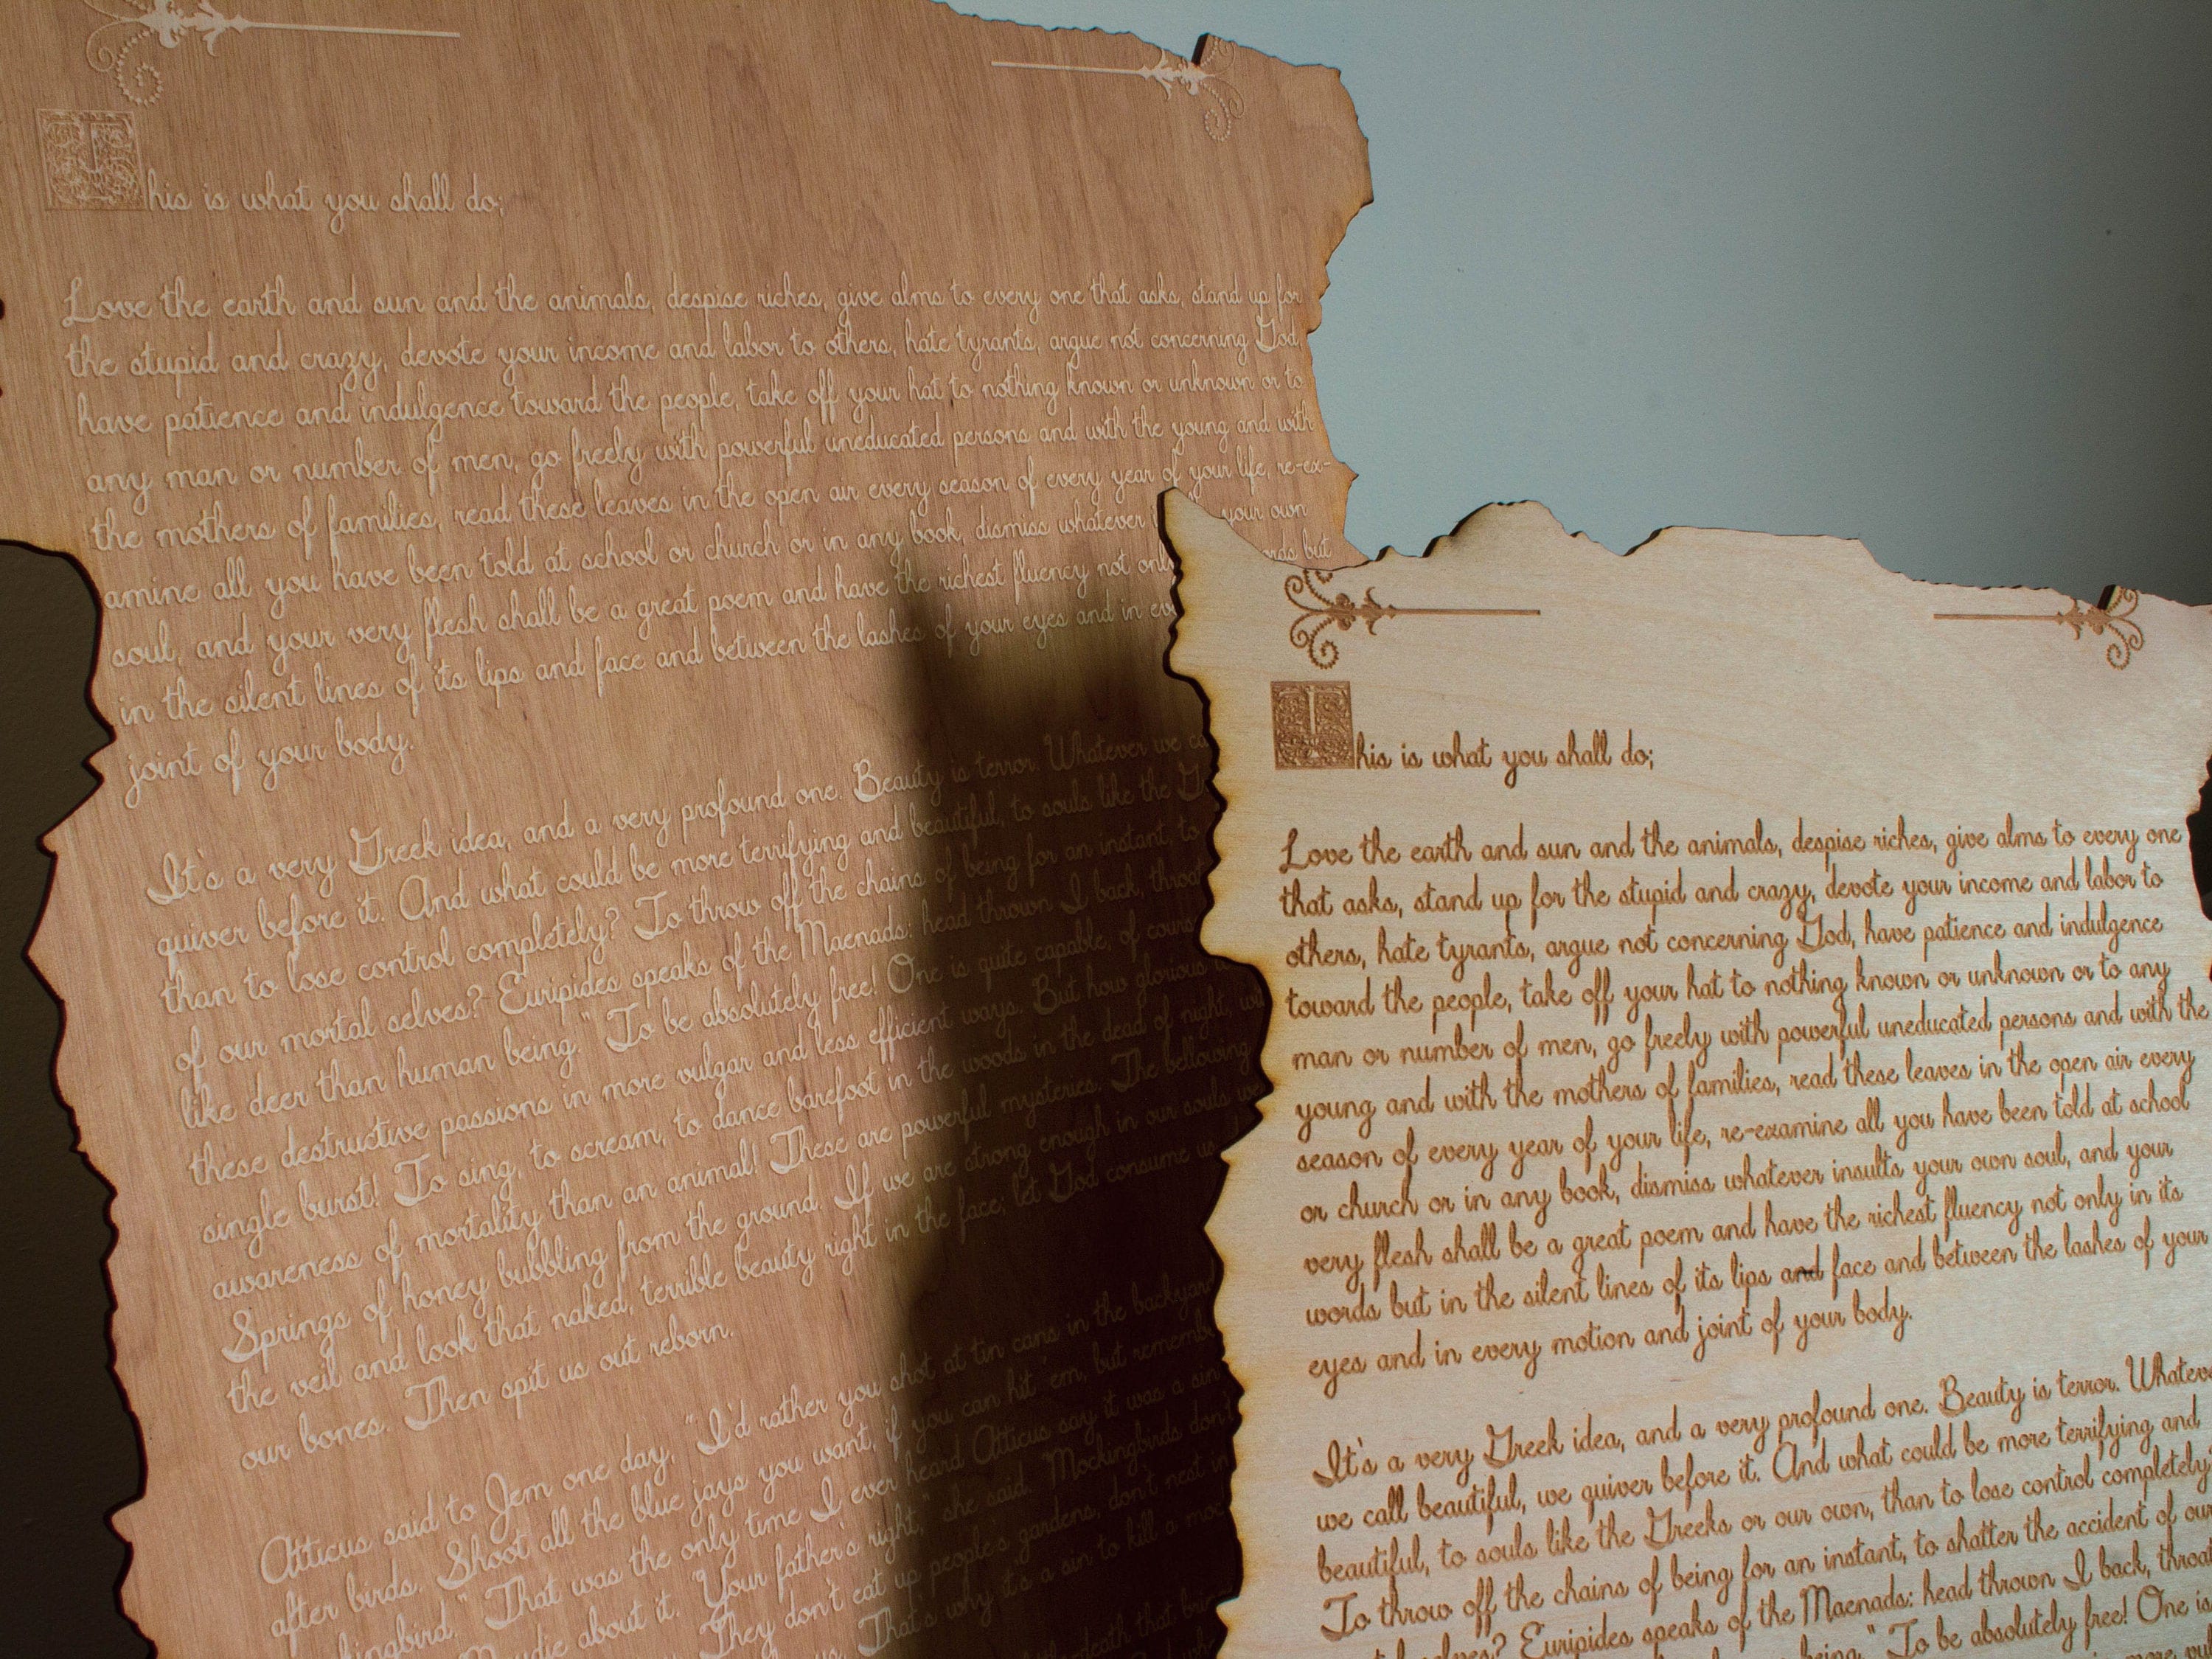 This is what you shall do;
Love the earth and sun and the animals, despise riches, give alms to every one that asks, stand up for
the stupid and crazy, devote your income and labor to others, hate tyrants, argue not concerning God,
have patience and indulgence toward the people, take off your hat to nothing known or unknown or to
any man or number of men, go freely with powerful uneducated persons and with the young and with
the mothers of families, read these leaves in the open air every season of every year of your life, re-ex-
amine all you have been told at school or church or in any book, dismiss whatever your own
soul, and your very flesh shall be a great poem and have the richest fluency not only but
in the silent lines of its lips and face and between the lashes of your eyes and in
joint of your body.
It's a very Greek idea, and a very profound one. Beauty is terror. Whatever we
quiver before it. And what could be more terrifying and beautiful, to souls like the
than to lose control completely? To throw off the chains of being for an instant, to
of our mortal selves? Euripides speaks of the Maenads: head thrown I back, throat
like deer than human being." To be absolutely free! One is quite capable, of
these destructive passions in more vulgar and less efficient ways. But how glorious
single burst! To sing, to scream, to dance barefoot in the woods in the dead of night,
awareness of mortality than an animal! These are powerful mysteries. The bellowing
Springs of honey bubbling from the ground. If we are strong enough in our souls
the veil and look that naked, terrible beauty right in the face; let God consume us
our bones. Then spit us out reborn.
Atticus said to Jem one day, "I'd rather you shot at tin cans in the backyard
after birds. Shoot all the blue jays you want, if you can hit 'em, but
" That was the only time I ever heard Atticus say it was a sin
about it. "Your father's right," she said. "Mockingbirds don't
They don't eat up people's gardens, don't nest in
That's why it's a sin to kill a
death that
This is what you shall do;
Love the earth and sun and the animals, despise riches, give alms to every one
that asks, stand up for the stupid and crazy, devote your income and labor to
others, hate tyrants, argue not concerning God, have patience and indulgence
toward the people, take off your hat to nothing known or unknown or to any
man or number of men, go freely with powerful uneducated persons and with the
young and with the mothers of families, read these leaves in the open air every
season of every year of your life, re-examine all you have been told at school
or church or in any book, dismiss whatever insults your own soul, and your
very flesh shall be a great poem and have the richest fluency not only in its
words but in the silent lines of its lips and face and between the lashes of your
eyes and in every motion and joint of your body.
It's a very Greek idea, and a very profound one. Beauty is terror.
we call beautiful, we quiver before it. And what could be more terrifying and
beautiful, to souls like the Greeks or our own, than to lose control completely
To throw off the chains of being for an instant, to shatter the accident of our
Euripides speaks of the Maenads: head thrown I back, throat
being." To be absolutely free! One is
more